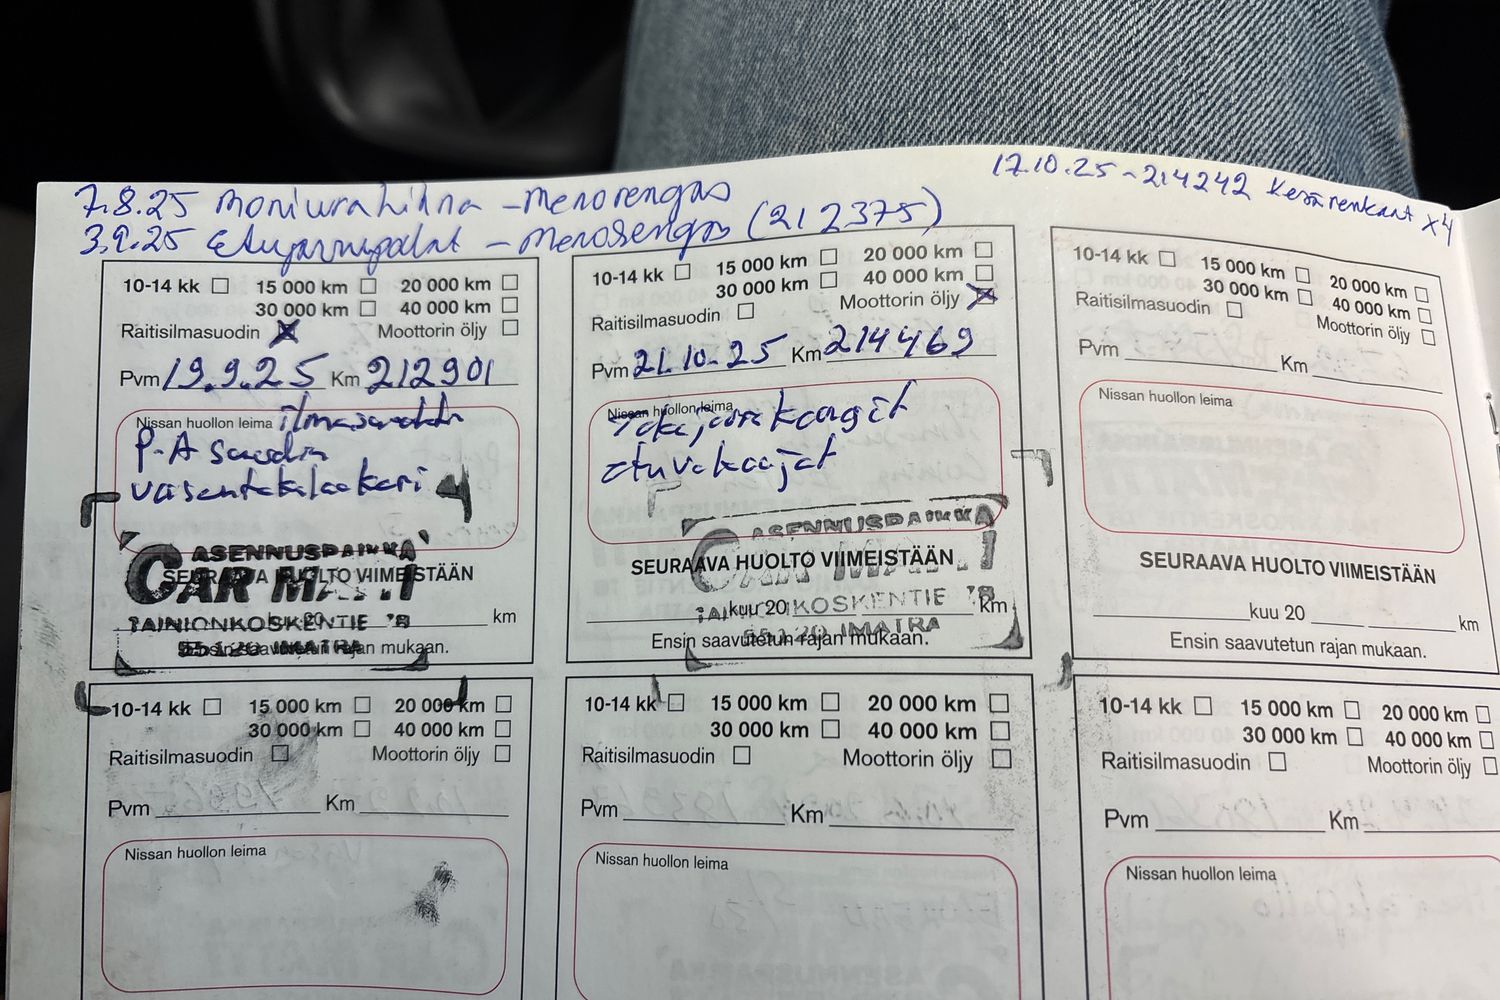 7.8.25 moniurahihna - menorengas
3.9.25 Etujarrupalat - menorengas (212375)
17.10.25 - 214242 Kesärenkaat x4
10-14 kk 15 000 km 20 000 km
30 000 km 40 000 km
Raitisilmasuodin Moottorin öljy
Pvm 19.9.25 Km 212901
Nissan huollon leima ilmasuodin
P-A suodin
vasen takalaakeri
ASENNUSPAIKKA
CAR MATTI
SEURAAVA HUOLTO VIIMEISTÄÄN
kuu 20 km
TAINIONKOSKENTIE 78
55120 IMATRA
Ensin saavutetun rajan mukaan.
10-14 kk 15 000 km 20 000 km
30 000 km 40 000 km
Raitisilmasuodin Moottorin öljy
Pvm 21.10.25 Km 214469
Nissan huollon leima
Takajarrukengät
etuvakaajat
ASENNUSPAIKKA
CAR MATTI
SEURAAVA HUOLTO VIIMEISTÄÄN
kuu 20 km
TAINIONKOSKENTIE 78
55120 IMATRA
Ensin saavutetun rajan mukaan.
10-14 kk 15 000 km 20 000 km
30 000 km 40 000 km
Raitisilmasuodin Moottorin öljy
Pvm Km
Nissan huollon leima
SEURAAVA HUOLTO VIIMEISTÄÄN
kuu 20 km
Ensin saavutetun rajan mukaan.
10-14 kk 15 000 km 20 000 km
30 000 km 40 000 km
Raitisilmasuodin Moottorin öljy
Pvm Km
Nissan huollon leima
10-14 kk 15 000 km 20 000 km
30 000 km 40 000 km
Raitisilmasuodin Moottorin öljy
Pvm Km
Nissan huollon leima
10-14 kk 15 000 km 20 000 km
30 000 km 40 000 km
Raitisilmasuodin Moottorin öljy
Pvm Km
Nissan huollon leima